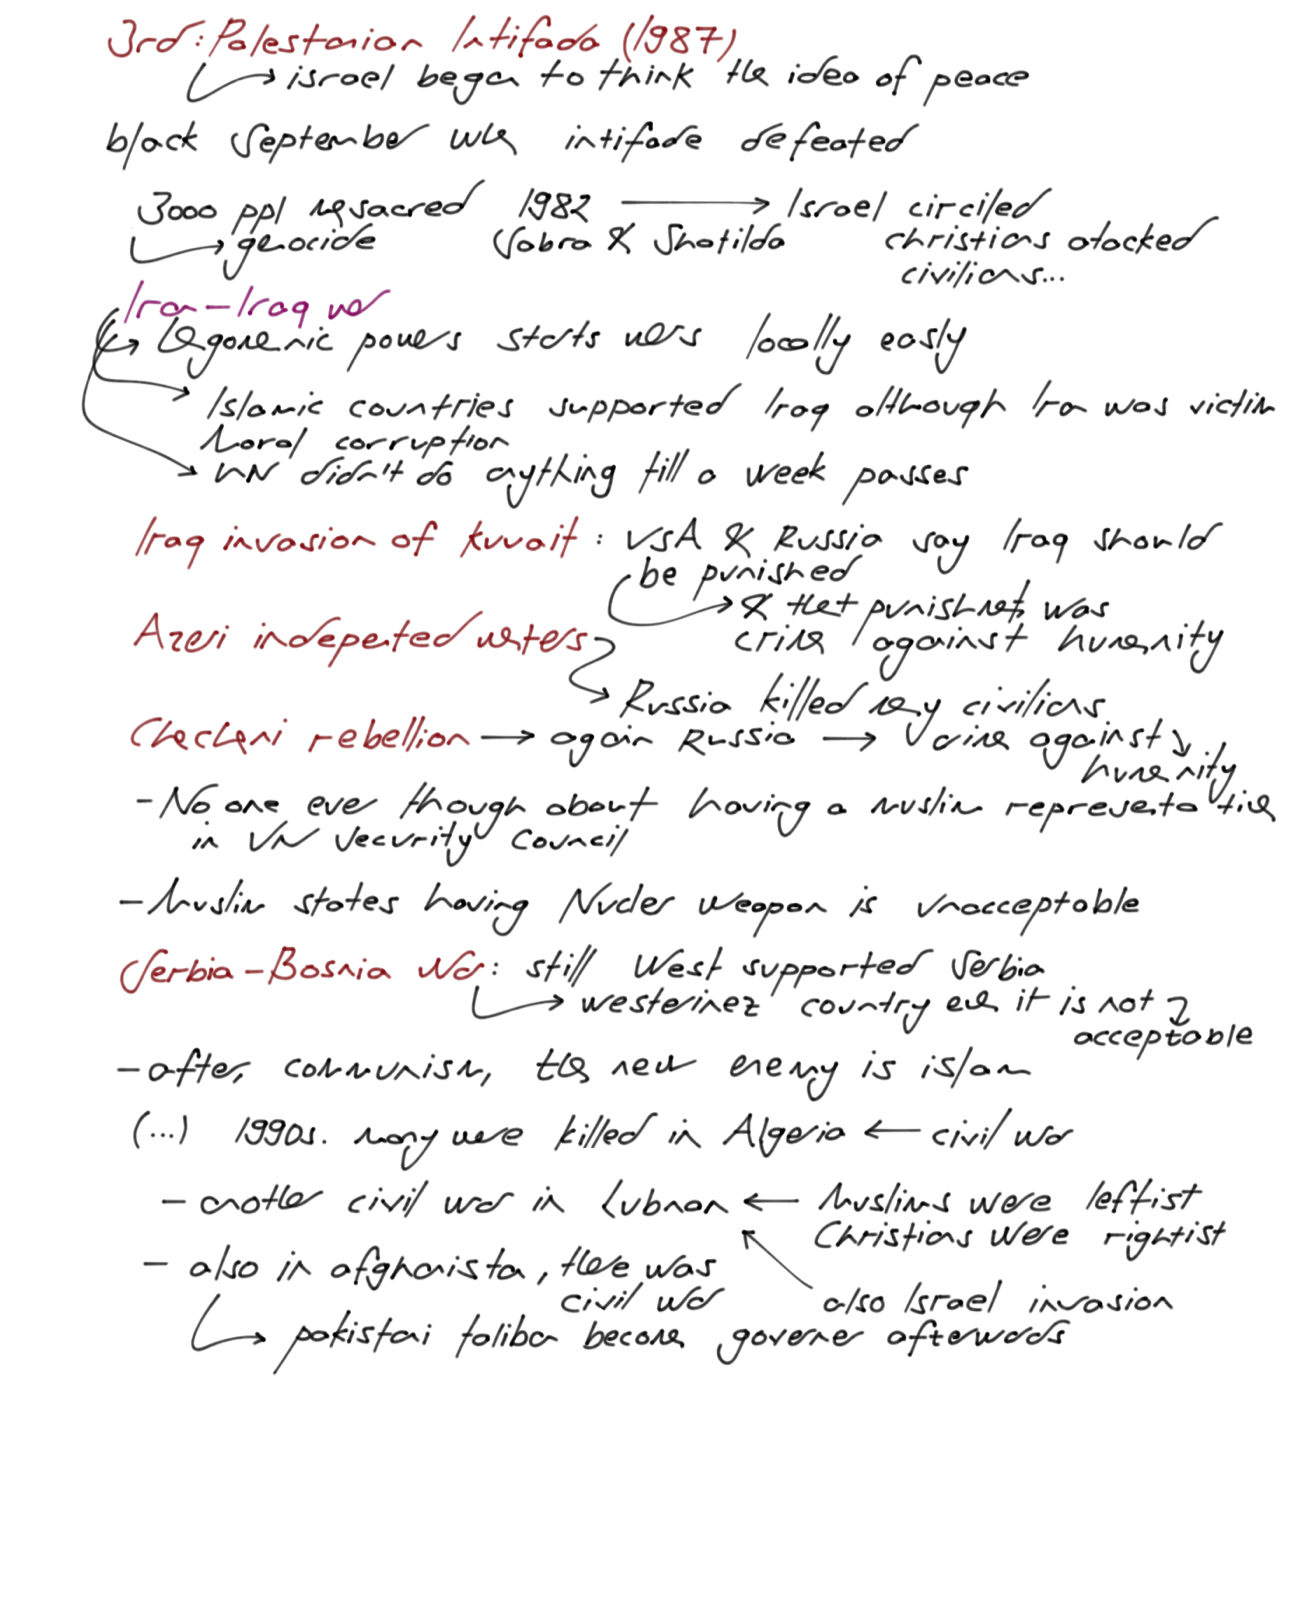 3rd: Palestanian Intifada (1987)
israel began to think the idea of peace
black September when intifade defeated
3000 ppl massacred 1982 → Israel circiled
genocide Sabra & Shatilda christians atacked
civilians...
Iran-Iraq war
Hegomenic powers starts wars locally easly
Islamic countries supported Iraq although Iran was victim
Moral corruption
UN didn't do anything till a week passes
Iraq invasion of Kuvait: USA & Russia say Iraq should
be punished
& that punishment was
Azeri indepented wanters crime against humanity
Russia killed many civilians
Chechani rebellion → again Russia → crime against
humanity
- No one ever though about having a muslim representative
in UN Security Council
- Muslim states having Nucler weapon is unacceptable
Serbia-Bosnia War: still West supported Serbia
westerinez country even it is not
acceptable
- after, communism, the new enemy is islam
(...) 1990s. many were killed in Algeria ← civil war
- another civil war in Lubnan ← Muslims were leftist
Christians were rightist
- also in afghanistan, there was
civil war also Israel invasion
pakistani taliban become governer afterwards